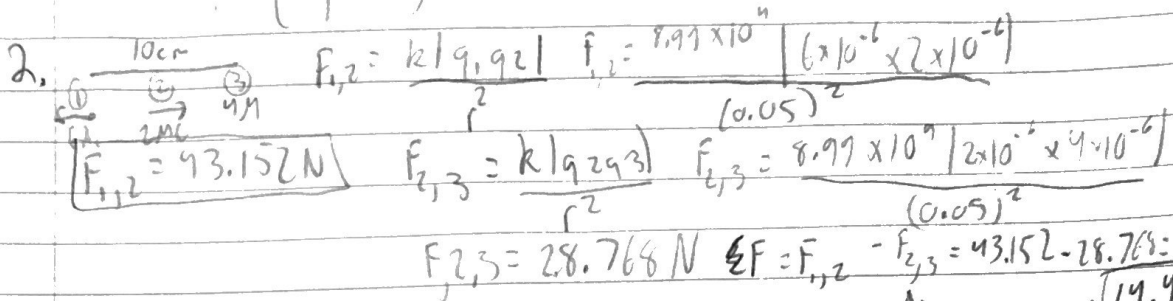 2. 10cm F₁,₂ = k|q₁q₂| / r² F₁,₂ = 8.99 × 10⁹ |6×10⁻⁶ × 2×10⁻⁶| / (0.05)²
① ② ③
2MC 4M
F₁,₂ = 43.152N F₂,₃ = k|q2q3| / r² F₂,₃ = 8.99 × 10⁹ |2×10⁻⁶ × 4×10⁻⁶| / (0.05)²
F2,3 = 28.768 N ΣF = F₁,₂ - F₂,₃ = 43.152 - 28.768 =
14.